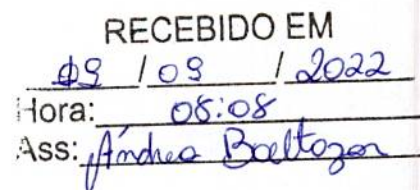 RECEBIDO EM
09 / 09 / 2022
Hora: 08:08
Ass: Andrea Baltazar